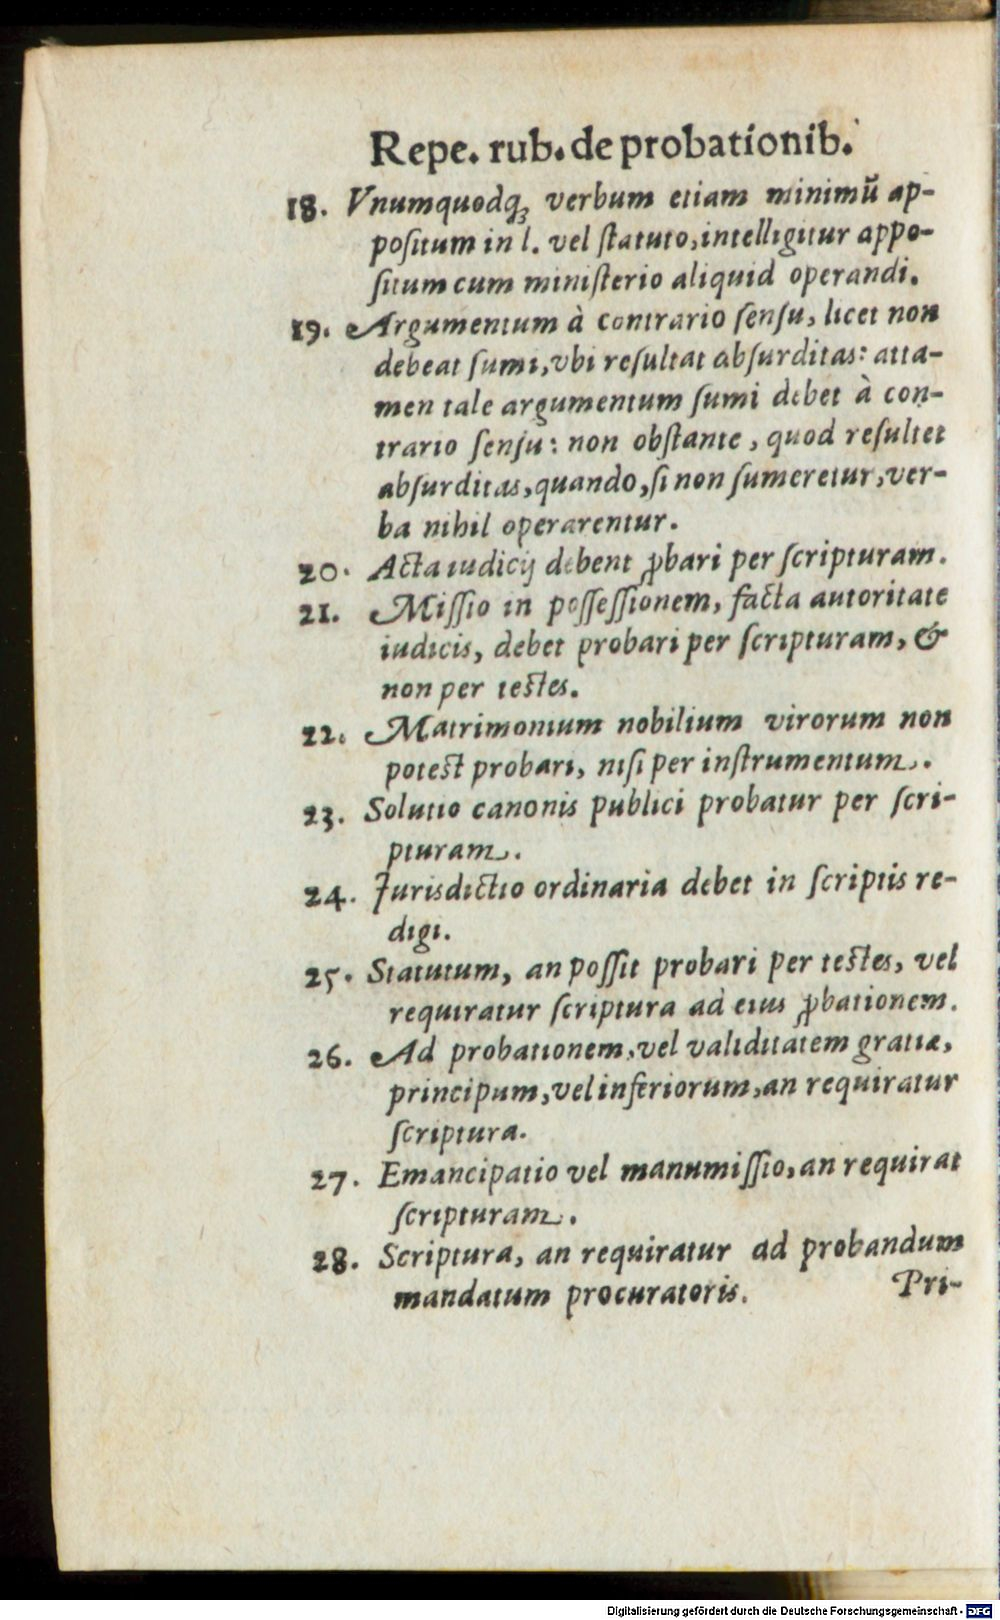 Repe. rub. de probationib.
18. Vnumquodq́ꝫ verbum etiam minimū ap-
positum in l. vel statuto, intelligitur appo-
situm cum ministerio aliquid operandi.
19. Argumentum à contrario sensu, licet non
debeat sumi, vbi resultat absurditas: atta-
men tale argumentum sumi debet à con-
trario sensu: non obstante, quod resultet
absurditas, quando, si non sumeretur, ver-
ba nihil operarentur.
20. Acta iudicij debent ꝓbari per scripturam.
21. Missio in possessionem, facta autoritate
iudicis, debet probari per scripturam, &
non per testes.
22. Matrimonium nobilium virorum non
potest probari, nisi per instrumentum.
23. Solutio canonis publici probatur per scri-
pturam.
24. Jurisdictio ordinaria debet in scriptis re-
digi.
25. Statutum, an possit probari per testes, vel
requiratur scriptura ad eius ꝓbationem.
26. Ad probationem, vel validitatem gratiæ,
principum, vel inferiorum, an requiratur
scriptura.
27. Emancipatio vel manumissio, an requirat
scripturam.
28. Scriptura, an requiratur ad probandum
mandatum procuratoris.
Pri-
Digitalisierung gefördert durch die Deutsche Forschungsgemeinschaft - DFG